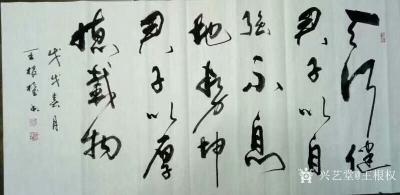 天行健
君子以自
强不息
地势坤
君子以厚
德載物
戊戌春月
王根权书
兴艺堂@王根权